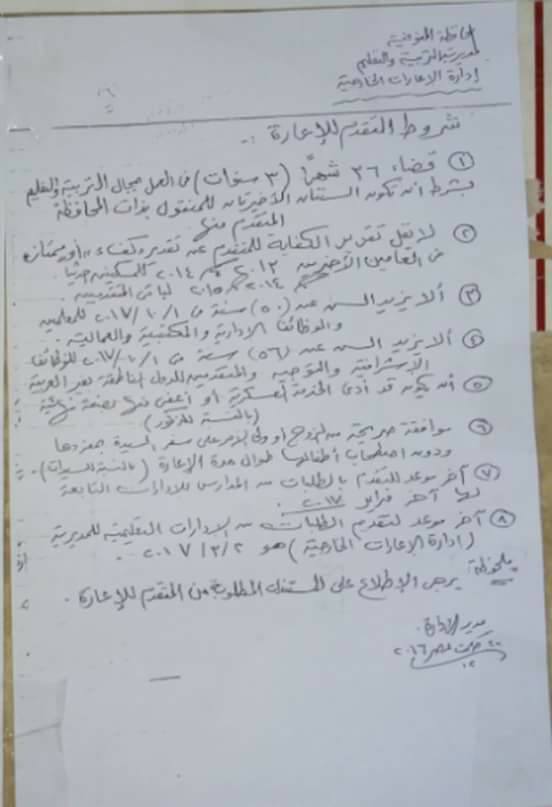 محافظة المنوفية
مديرية التربية والتعليم
إدارة الإعارات الخارجية
شروط التقدم للإعارة :-
① قضاء ٣٦ شهرًا (٣ سنوات) فى العمل بمجال التربية والتعليم
بشرط أن تكون السنتان الأخيرتان للمنقول بذات المحافظة
المتقدم منها
② لا تقل تقدير الكفاية للمتقدم عن تقدير كفء أو ممتاز
فى العامين الأخيرين ٢٠١٣ ٢٠١٤
٢٠١٤ ٢٠١٥ لباقى المتقدمين .
③ ألا يزيد السن عن (٥٠) سنة فى ٢٠١٧/١٠/١ للمعلمين
والوظائف الإدارية والمكتبية والعمالية .
④ ألا يزيد السن عن (٥٦) سنة فى ٢٠١٧/١٠/١ للوظائف
الإشرافية والتوجيه والمتقدمين للدول الناطقة بغير العربية
⑤ أن يكون قد أدى الخدمة العسكرية أو أعفى منها بصفة نهائية
(بالنسبة للذكور)
⑥ موافقة صريحة من الزوج أو ولى الأمر على سفر السيدة بمفردها
ودون اصطحاب أطفالها طوال مدة الإعارة (بالنسبة للسيدات) .
⑦ آخر موعد للتقدم بالطلبات من المدارس للإدارات التابعة
لها آخر فبراير ٢٠١٧ .
⑧ آخر موعد لتقديم الطلبات من الإدارات التعليمية للمديرية
(إدارة الإعارات الخارجية) هو ٢٠١٧/٣/٢ .
ملحوظة: يرجى الإطلاع على المستندات المطلوبة من المتقدم للإعارة .
مدير الإدارة